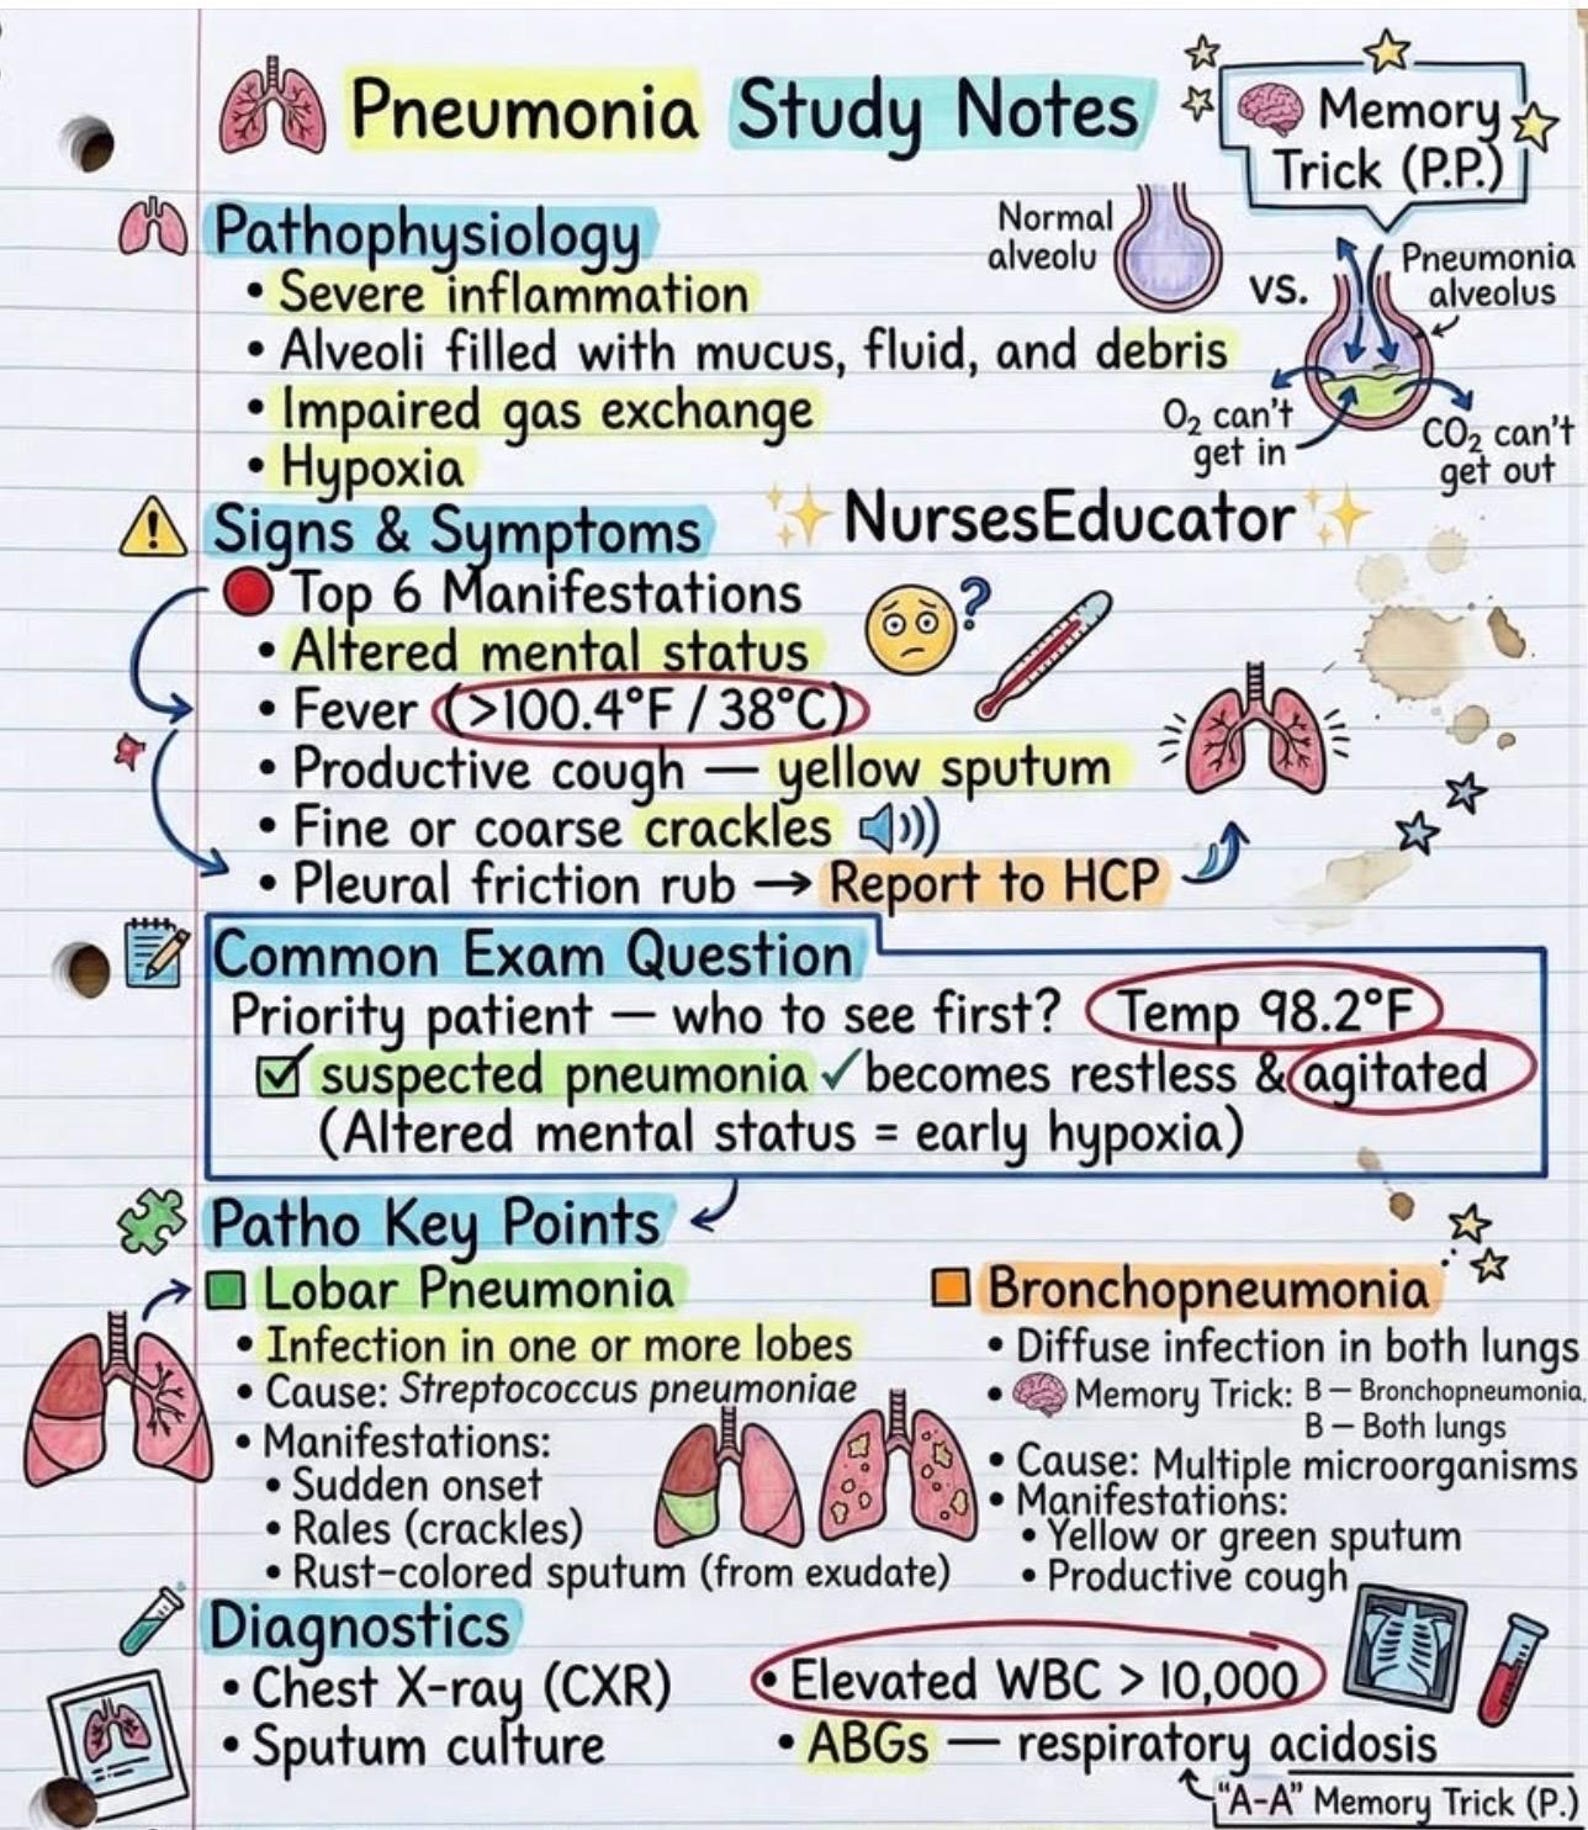 Pneumonia Study Notes
Memory
Trick (P.P.)
Pathophysiology
• Severe inflammation
• Alveoli filled with mucus, fluid, and debris
• Impaired gas exchange
• Hypoxia
Normal
alveolu
vs.
Pneumonia
alveolus
O₂ can't
get in
CO₂ can't
get out
NursesEducator
Signs & Symptoms
Top 6 Manifestations
• Altered mental status
• Fever (>100.4°F / 38°C)
• Productive cough — yellow sputum
• Fine or coarse crackles
• Pleural friction rub → Report to HCP
Common Exam Question
Priority patient — who to see first? Temp 98.2°F
☑ suspected pneumonia ✓ becomes restless & agitated
(Altered mental status = early hypoxia)
Patho Key Points
Lobar Pneumonia
• Infection in one or more lobes
• Cause: Streptococcus pneumoniae
• Manifestations:
• Sudden onset
• Rales (crackles)
• Rust-colored sputum (from exudate)
Bronchopneumonia
• Diffuse infection in both lungs
• Memory Trick: B — Bronchopneumonia.
B — Both lungs
• Cause: Multiple microorganisms
• Manifestations:
• Yellow or green sputum
• Productive cough
Diagnostics
• Chest X-ray (CXR)
• Sputum culture
• Elevated WBC > 10,000
• ABGs — respiratory acidosis
"A-A" Memory Trick (P.)